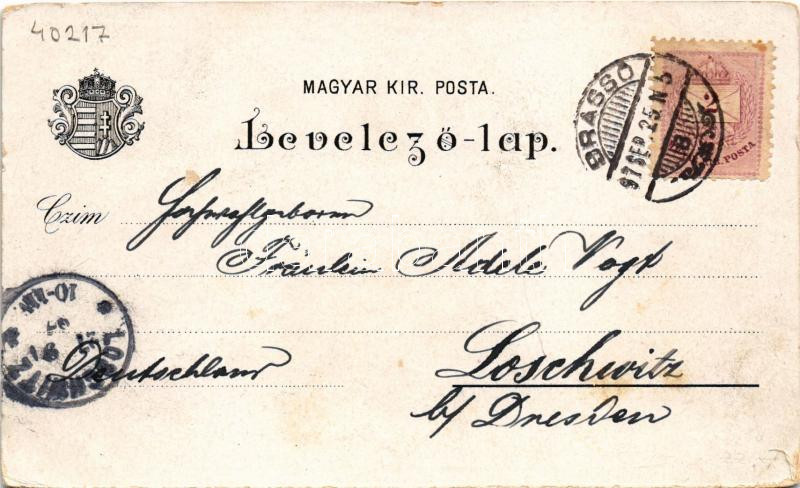 40217
MAGYAR KIR. POSTA.
Levelező-lap.
BRASSÓ
97 SEP. 25 N 5
POSTA
Czim Hochwohlgeboren
Fräulein Adele Vogt
10-11V
LOSCHWITZ
Deutschland Loschwitz
b/ Dresden